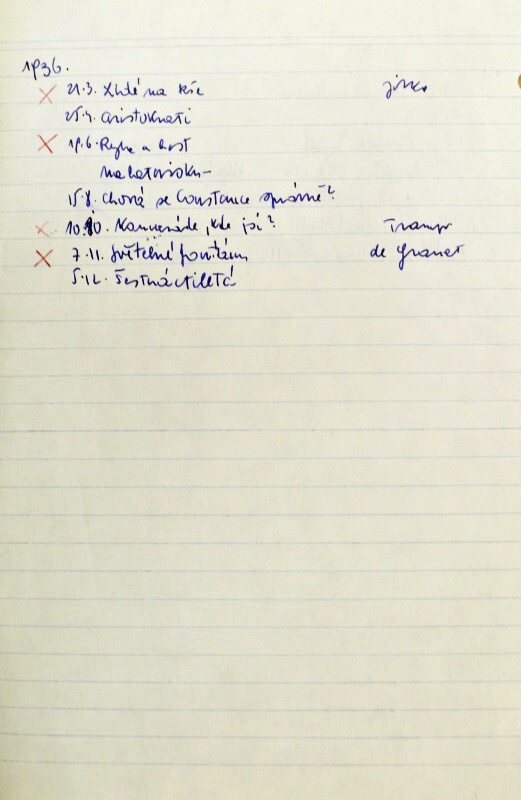 1936.
21.3. na
25.4. Aristokrati
19.6. Ryba a host
15.8. Chová se Constance správně?
10.10. Kamaráde, kde jsi? Tramp
7.11. Světelné fontány de Granet
5.12. Šestnáctiletá